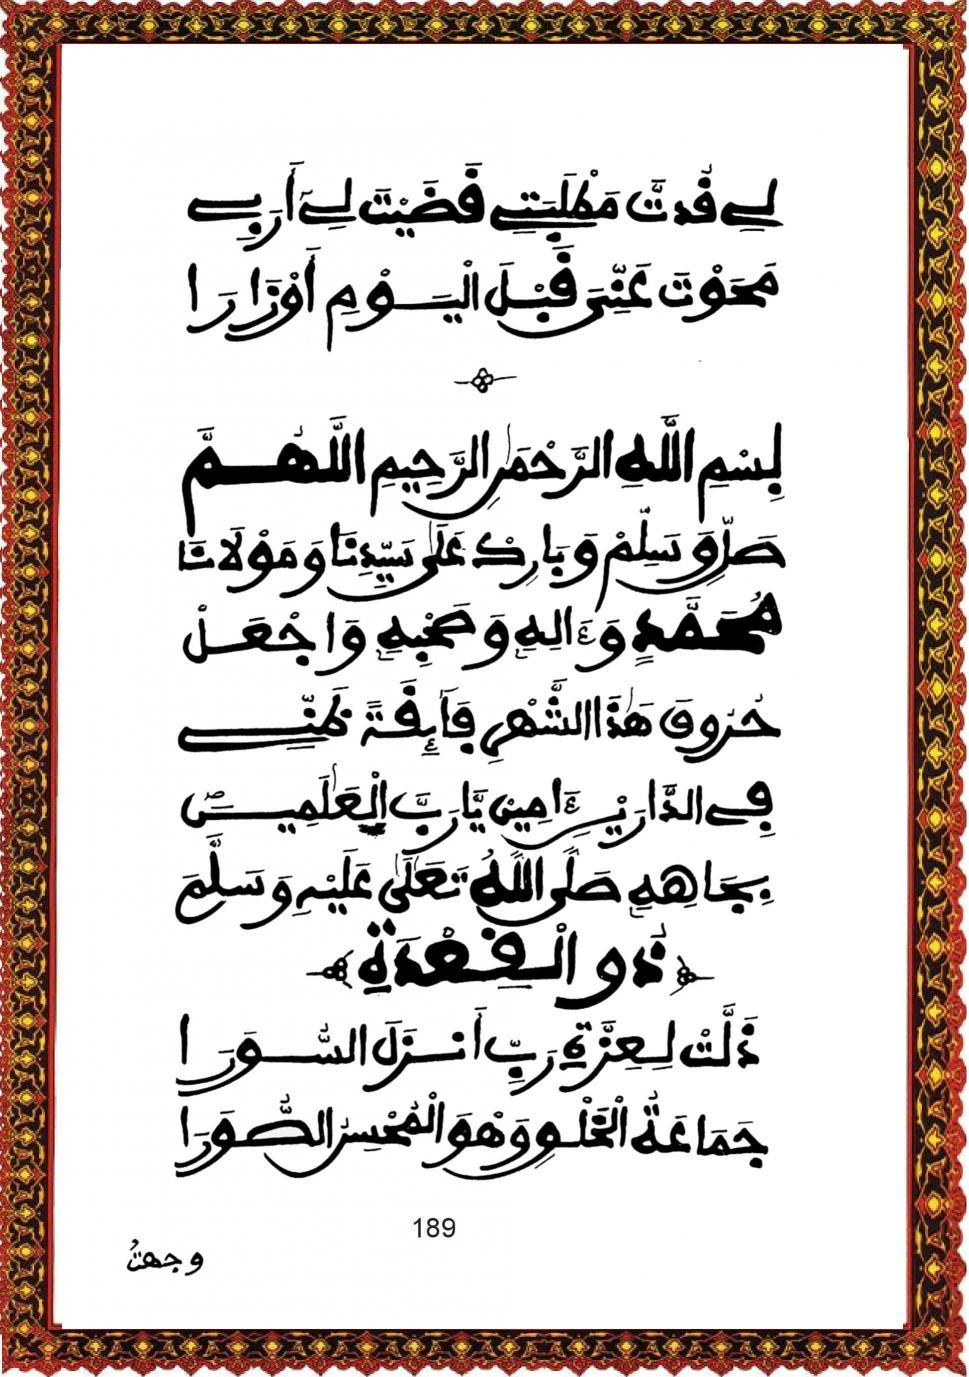 لِے قُدتَّ مَطْلَبَتِے قَضَيْتَ لِےَ أَرَبِے
مَحَوْتَ عَنِّىَ قَبْلَ الْيَوْمِ أَوْزَارَا
بِسْمِ اللَّهِ الرَّحْمَٰنِ الرَّحِيمِ اللَّهُمَّ
صَلِّ وَسَلِّمْ وَبَارِكْ عَلَىٰ سَيِّدِنَا وَمَوْلَانَا
مُحَمَّدٍ وَءَالِهِ وَصَحْبِهِ وَاجْعَلْ
حُرُوقَ هَٰذَا الشَّهْرِ فَآئِقَةً ظَنِّے
فِے الدَّارَيْنِ ءَامِينَ يَارَبَّ الْعَٰلَمِينَ
بِجَاهِهِ صَلَّى اللَّهُ تَعَٰلَىٰ عَلَيْهِ وَسَلَّمَ
ذُو الْقِعْدَةِ
ذَلَّتْ لِعِزَّةِ رَبٍّ أَنزَلَ السُّوَرَا
جَمَاعَةُ الْخَلْقِ وَهْوَ الْمُحْسِنُ الصُّوَرَا
189
وجهتُ